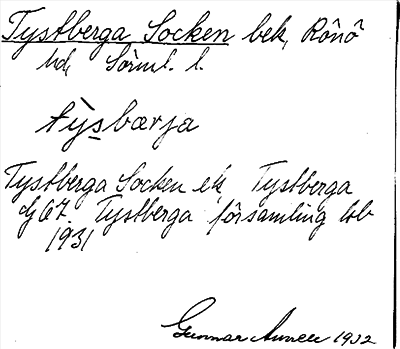 Tystberga Socken bek, Rönö
hd, Sörml. l.
tỳsbærja
Tystberga Socken ek, Tystberga
dj 67. Tystberga församling tob
1931
Gunnar 1932